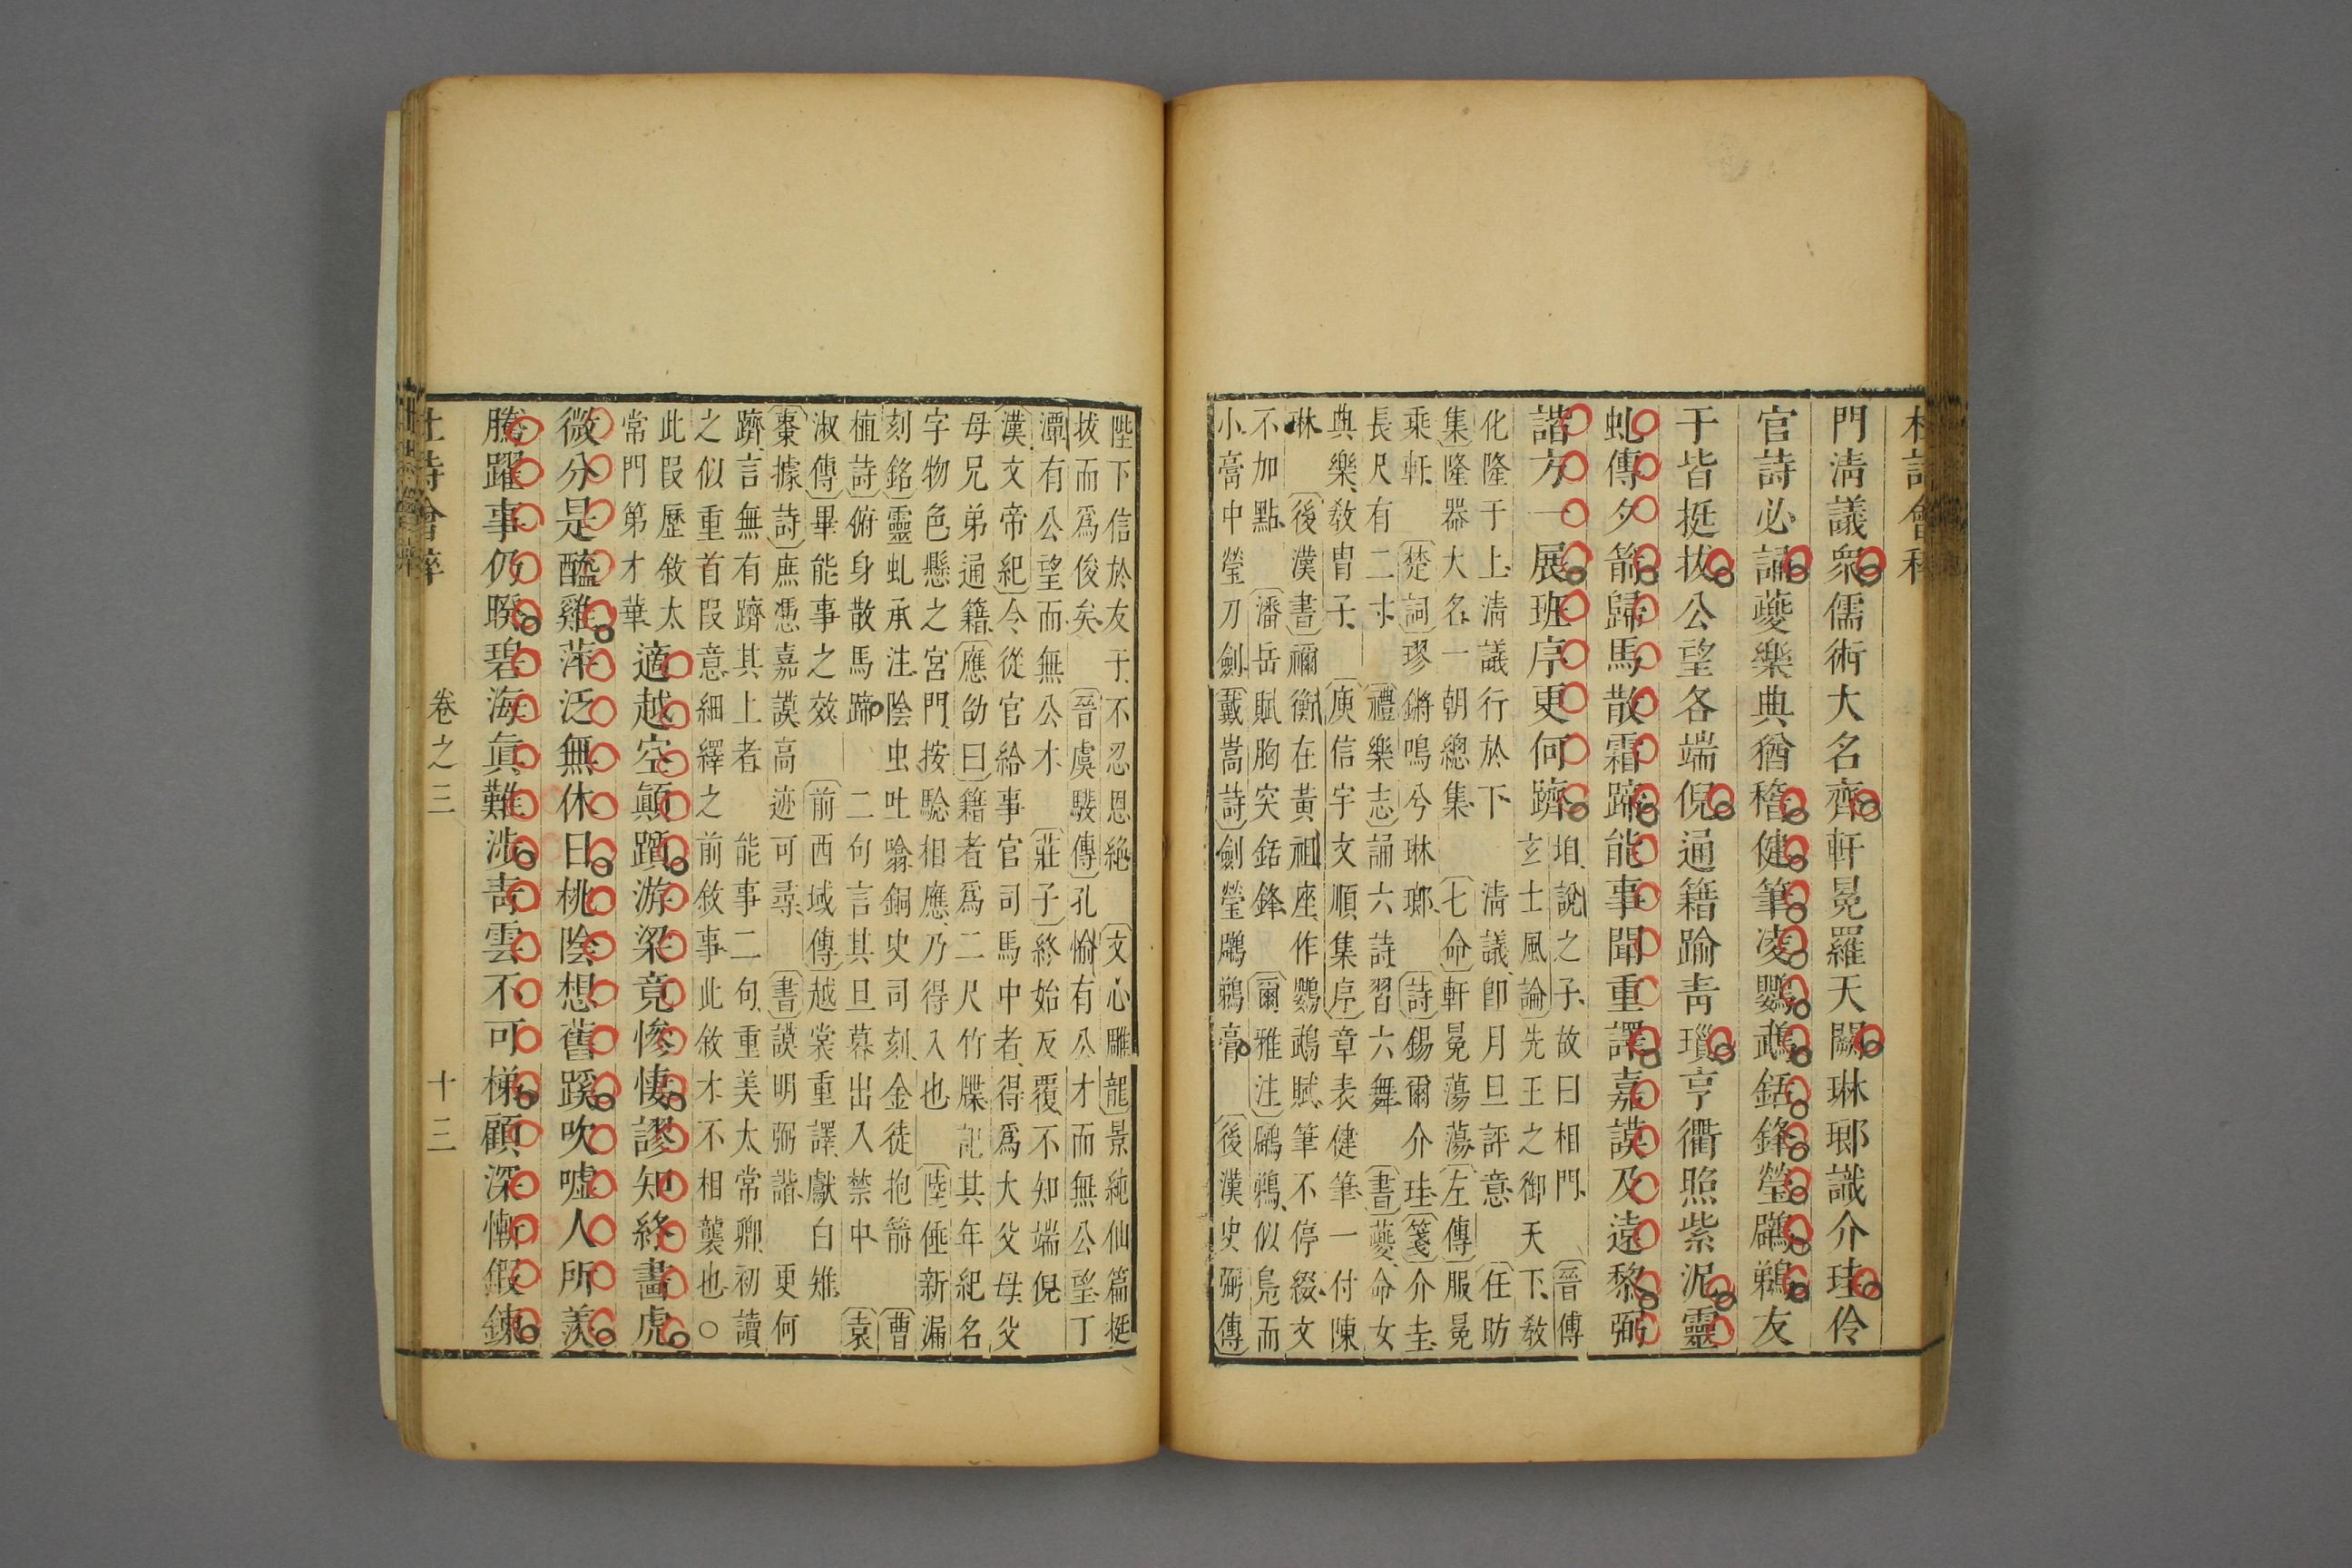 杜詩會稡
門淸議衆儒術大名齊軒冕羅天闕琳瑯識介珪伶
官詩必誦夔樂典猶稽健筆凌鸚鵡銛鋒瑩鷿鵜友
于皆挺拔公望各端倪通籍踰靑瑣亨衢照紫泥靈
虬傳夕箭歸馬散霜蹄能事聞重譯嘉謨及遠黎弼
諧方一展班序更何躋
坦說之子故曰相門晉傅
玄士風論先王之御天下敎
化隆于上淸議行於下淸議卽月旦評意任昉
集隆器大名一朝總集七命軒冕蕩蕩左傳服冕
乘軒楚詞璆鏘鳴兮琳瑯詩錫爾介珪箋介圭
長尺有二寸禮樂志誦六詩習六舞書夔命女
典樂敎胄子庾信宇文順集序章表健筆一付陳
琳後漢書禰衡在黃祖座作鸚鵡賦筆不停綴文
不加點潘岳賦胸突銛鋒爾雅注鷿鵜似鳧而
小膏中瑩刀劍戴嵩詩劍瑩鷿鵜膏後漢史弼傳
陛下信於友于不忍恩絶文心雕龍景純仙篇挺
拔而爲俊矣晉虞𩦎傳孔愉有公才而無公望丁
潭有公望而無公才莊子終始反覆不知端倪
漢文帝紀令從官給事官司馬中者得爲大父母父
母兄弟通籍應劭曰籍者爲二尺竹牒記其年紀名
字物色懸之宮門按騐相應乃得入也陸倕新漏
刻銘靈虬承注陰虫吐噏銅史司刻金徒抱箭曹
植詩俯身散馬蹄二句言其旦暮出入禁中袁
淑傳畢能事之效前西域傳越裳重譯獻白雉
棗據詩庶憑嘉謨高迹可尋書謨明弼諧更何
躋言無有躋其上者能事二句重美太常卿初讀
之似重首叚意細繹之前敘事此敘才不相襲也○
此叚歷敘太
常門第才華
適越空顚躓游梁竟慘悽謬知終畫虎
微分是醯雞萍泛無休日桃陰想舊蹊吹噓人所羨
騰躍事仍睽碧海眞難涉靑雲不可梯顧深慚鍜鍊
杜詩會稡
卷之三
十三